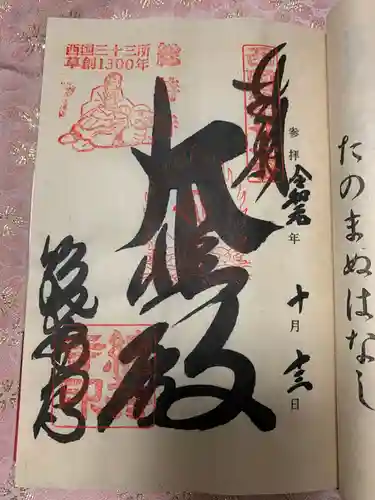 奉拝
参拝 令和元年 十月 十三日
大悲殿
総持寺
西国三十三所
草創1300年
総持
寺印
たのまぬはなし